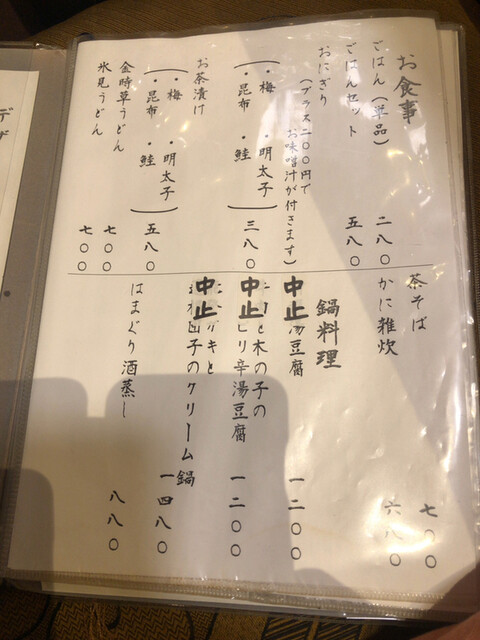 お食事
ごはん（単品） 二八〇
ごはんセット 五八〇
おにぎり
（プラス二〇〇円で
お味噌汁が付きます）
・梅 ・明太子
・昆布 ・鮭
三八〇
お茶漬け
・梅 ・明太子
・昆布 ・鮭
五八〇
金時草うどん 七〇〇
氷見うどん 七〇〇
茶そば 七〇〇
かに雑炊 六八〇
鍋料理
中止 湯豆腐 一二〇〇
中止 と木の子の
ピリ辛湯豆腐 一二〇〇
中止 ガキと
白子のクリーム鍋 一四八〇
はまぐり酒蒸し 八八〇
デザ